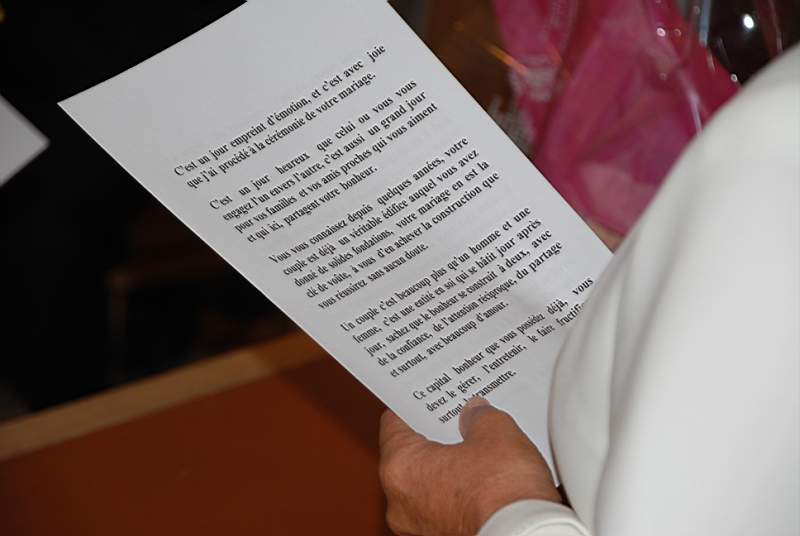 C'est un jour empreint d'émotion, et c'est avec joie
que j'ai procédé à la cérémonie de votre mariage.
C'est un jour heureux que celui ou vous vous
engagez l'un envers l'autre, c'est aussi un grand jour
pour vos familles et vos amis proches qui vous aiment
et qui ici, partagent votre bonheur.
Vous vous connaissez depuis quelques années, votre
couple est déjà un véritable édifice auquel vous avez
donné de solides fondations, votre mariage en est la
clé de voûte, à vous d'en achever la construction que
vous réussirez sans aucun doute.
Un couple c'est beaucoup plus qu'un homme et une
femme, c'est une entité en soi qui se bâtit jour après
jour, sachez que le bonheur se construit à deux, avec
de la confiance, de l'attention réciproque, du partage
et surtout, avec beaucoup d'amour.
Ce capital bonheur que vous possédez déjà, vous
devez le gérer, l'entretenir, le faire
surtout transmettre.